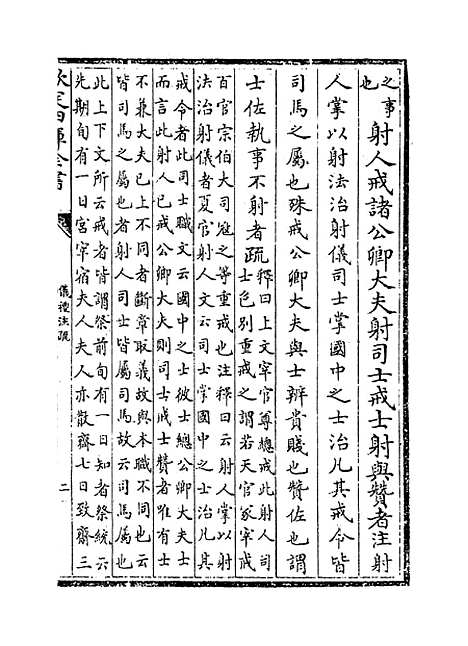 之事
也
射人戒諸公卿大夫射司士戒士射與贊者注射
人掌以射法治射儀司士掌國中之士治凡其戒令皆
司馬之屬也殊戒公卿大夫與士辨貴賤也贊佐也謂
士佐執事不射者疏
釋曰上文宰官尊總戒此射人司
士色別重戒之謂若天官冢宰戒
百官宗伯大司寇之等重戒也注釋曰云射人掌以射
法治射儀者夏官射人文云司士掌國中之士治凡其
戒令者此司士職文云國中之士彼士總公卿大夫士
而言此射人已戒公卿大夫則司士戒士贊者唯有士
不兼大夫已上不同者斷章取義故與本職不同也云
皆司馬之屬也者射人司士皆屬司馬故云司馬屬也
此上下文所云戒者皆謂祭前旬有一日知者祭統云
先期旬有一日宮宰宿夫人夫人亦散齋七日致齋三
欽定四庫全書
儀禮注疏
二